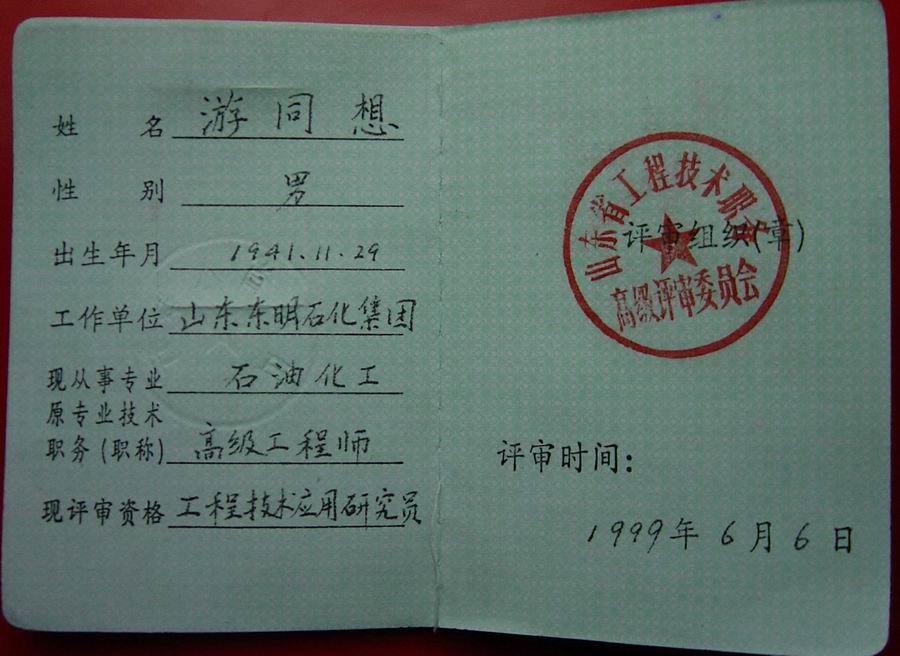 姓 名 游同想
性 别 男
出生年月 1941.11.29
工作单位 山东东明石化集团
现从事专业 石油化工
原专业技术
职务(职称) 高级工程师
现评审资格 工程技术应用研究员
山东省工程技术职
高级评审委员会
评审组织(章)
评审时间:
1999年6月6日